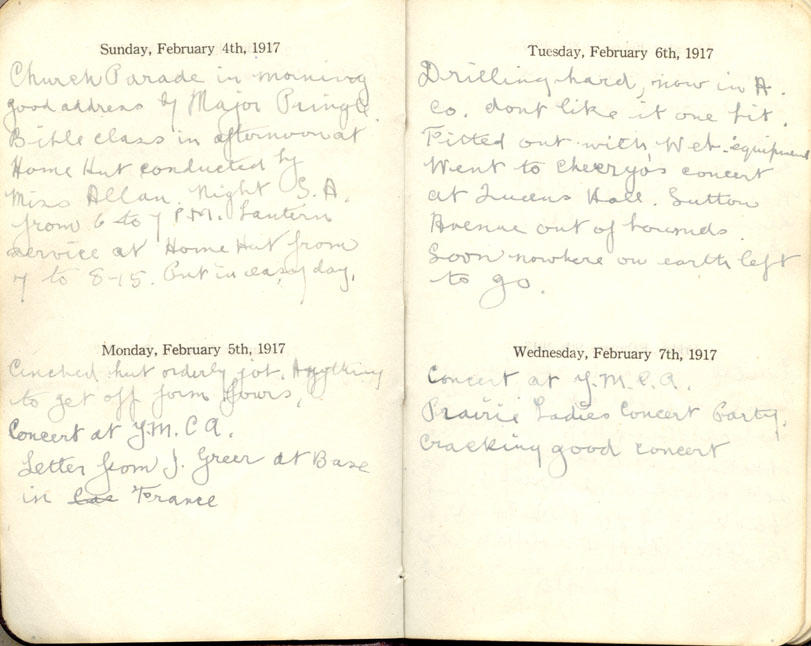 Sunday, February 4th, 1917
Church Parade in morning
good address by Major Pringle.
Bible class in afternoon at
Home Hut conducted by
Miss Allan. Night S.A.
from 6 to 7 P.M. Lantern
service at Home Hut from
7 to 8-15. Put in easy day.
Monday, February 5th, 1917
Cinched hut orderly job. Anything
to get off form fours,
Concert at Y.M.C.A.
Letter from J. Greer at Base
in France
Tuesday, February 6th, 1917
Drilling hard, now in A.
Co. dont like it one bit.
Fitted out with Web-equipment
Went to Cheeryo's concert
at Queens Hall. Sutton
Avenue out of bounds.
Soon nowhere on earth left
to go.
Wednesday, February 7th, 1917
Concert at Y.M.C.A.
Prairie Ladies Concert Party.
Cracking good concert